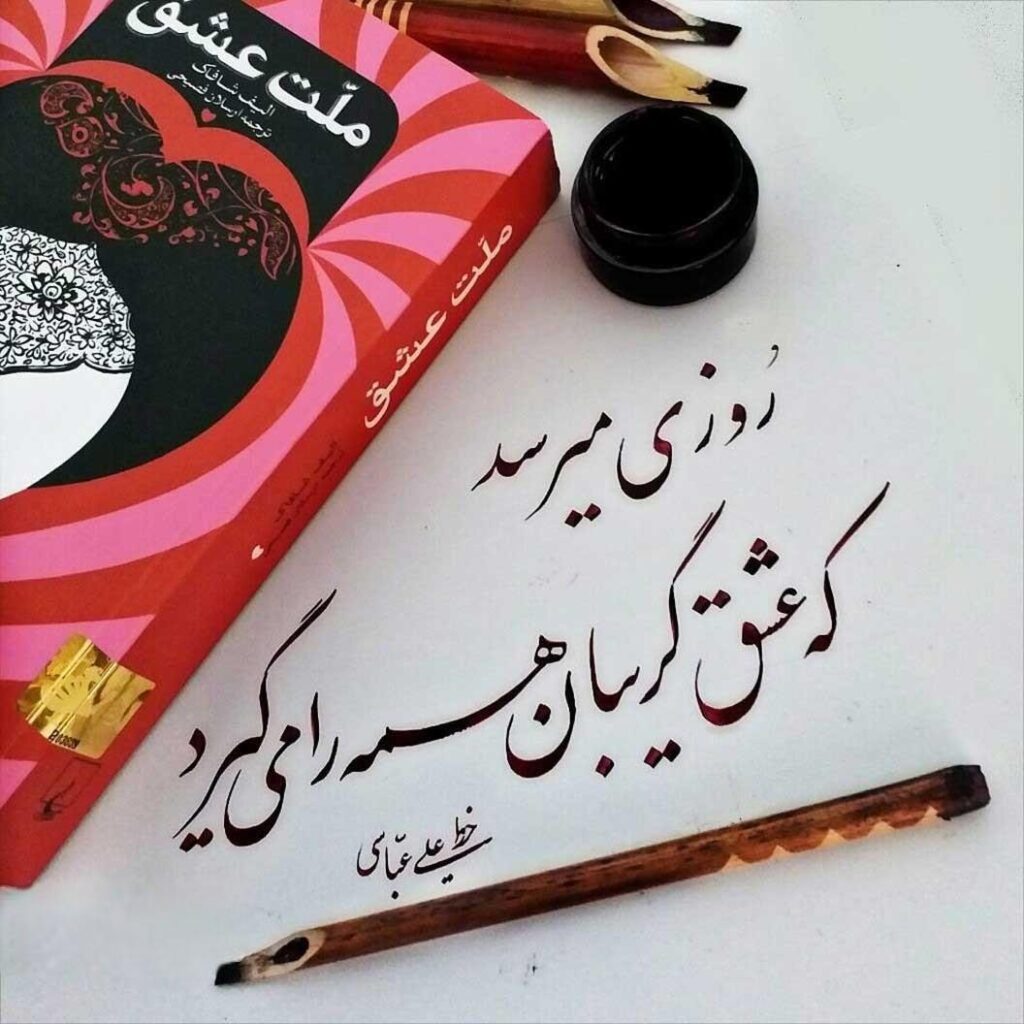 ملّت عشق
الیف شافاک
ترجمه ارسلان فصیحی
ملّت عشق
الیف شافاک
رُوزی میرسد
که عشق گریبان همه را می گیرد
خط علی عبّاسی